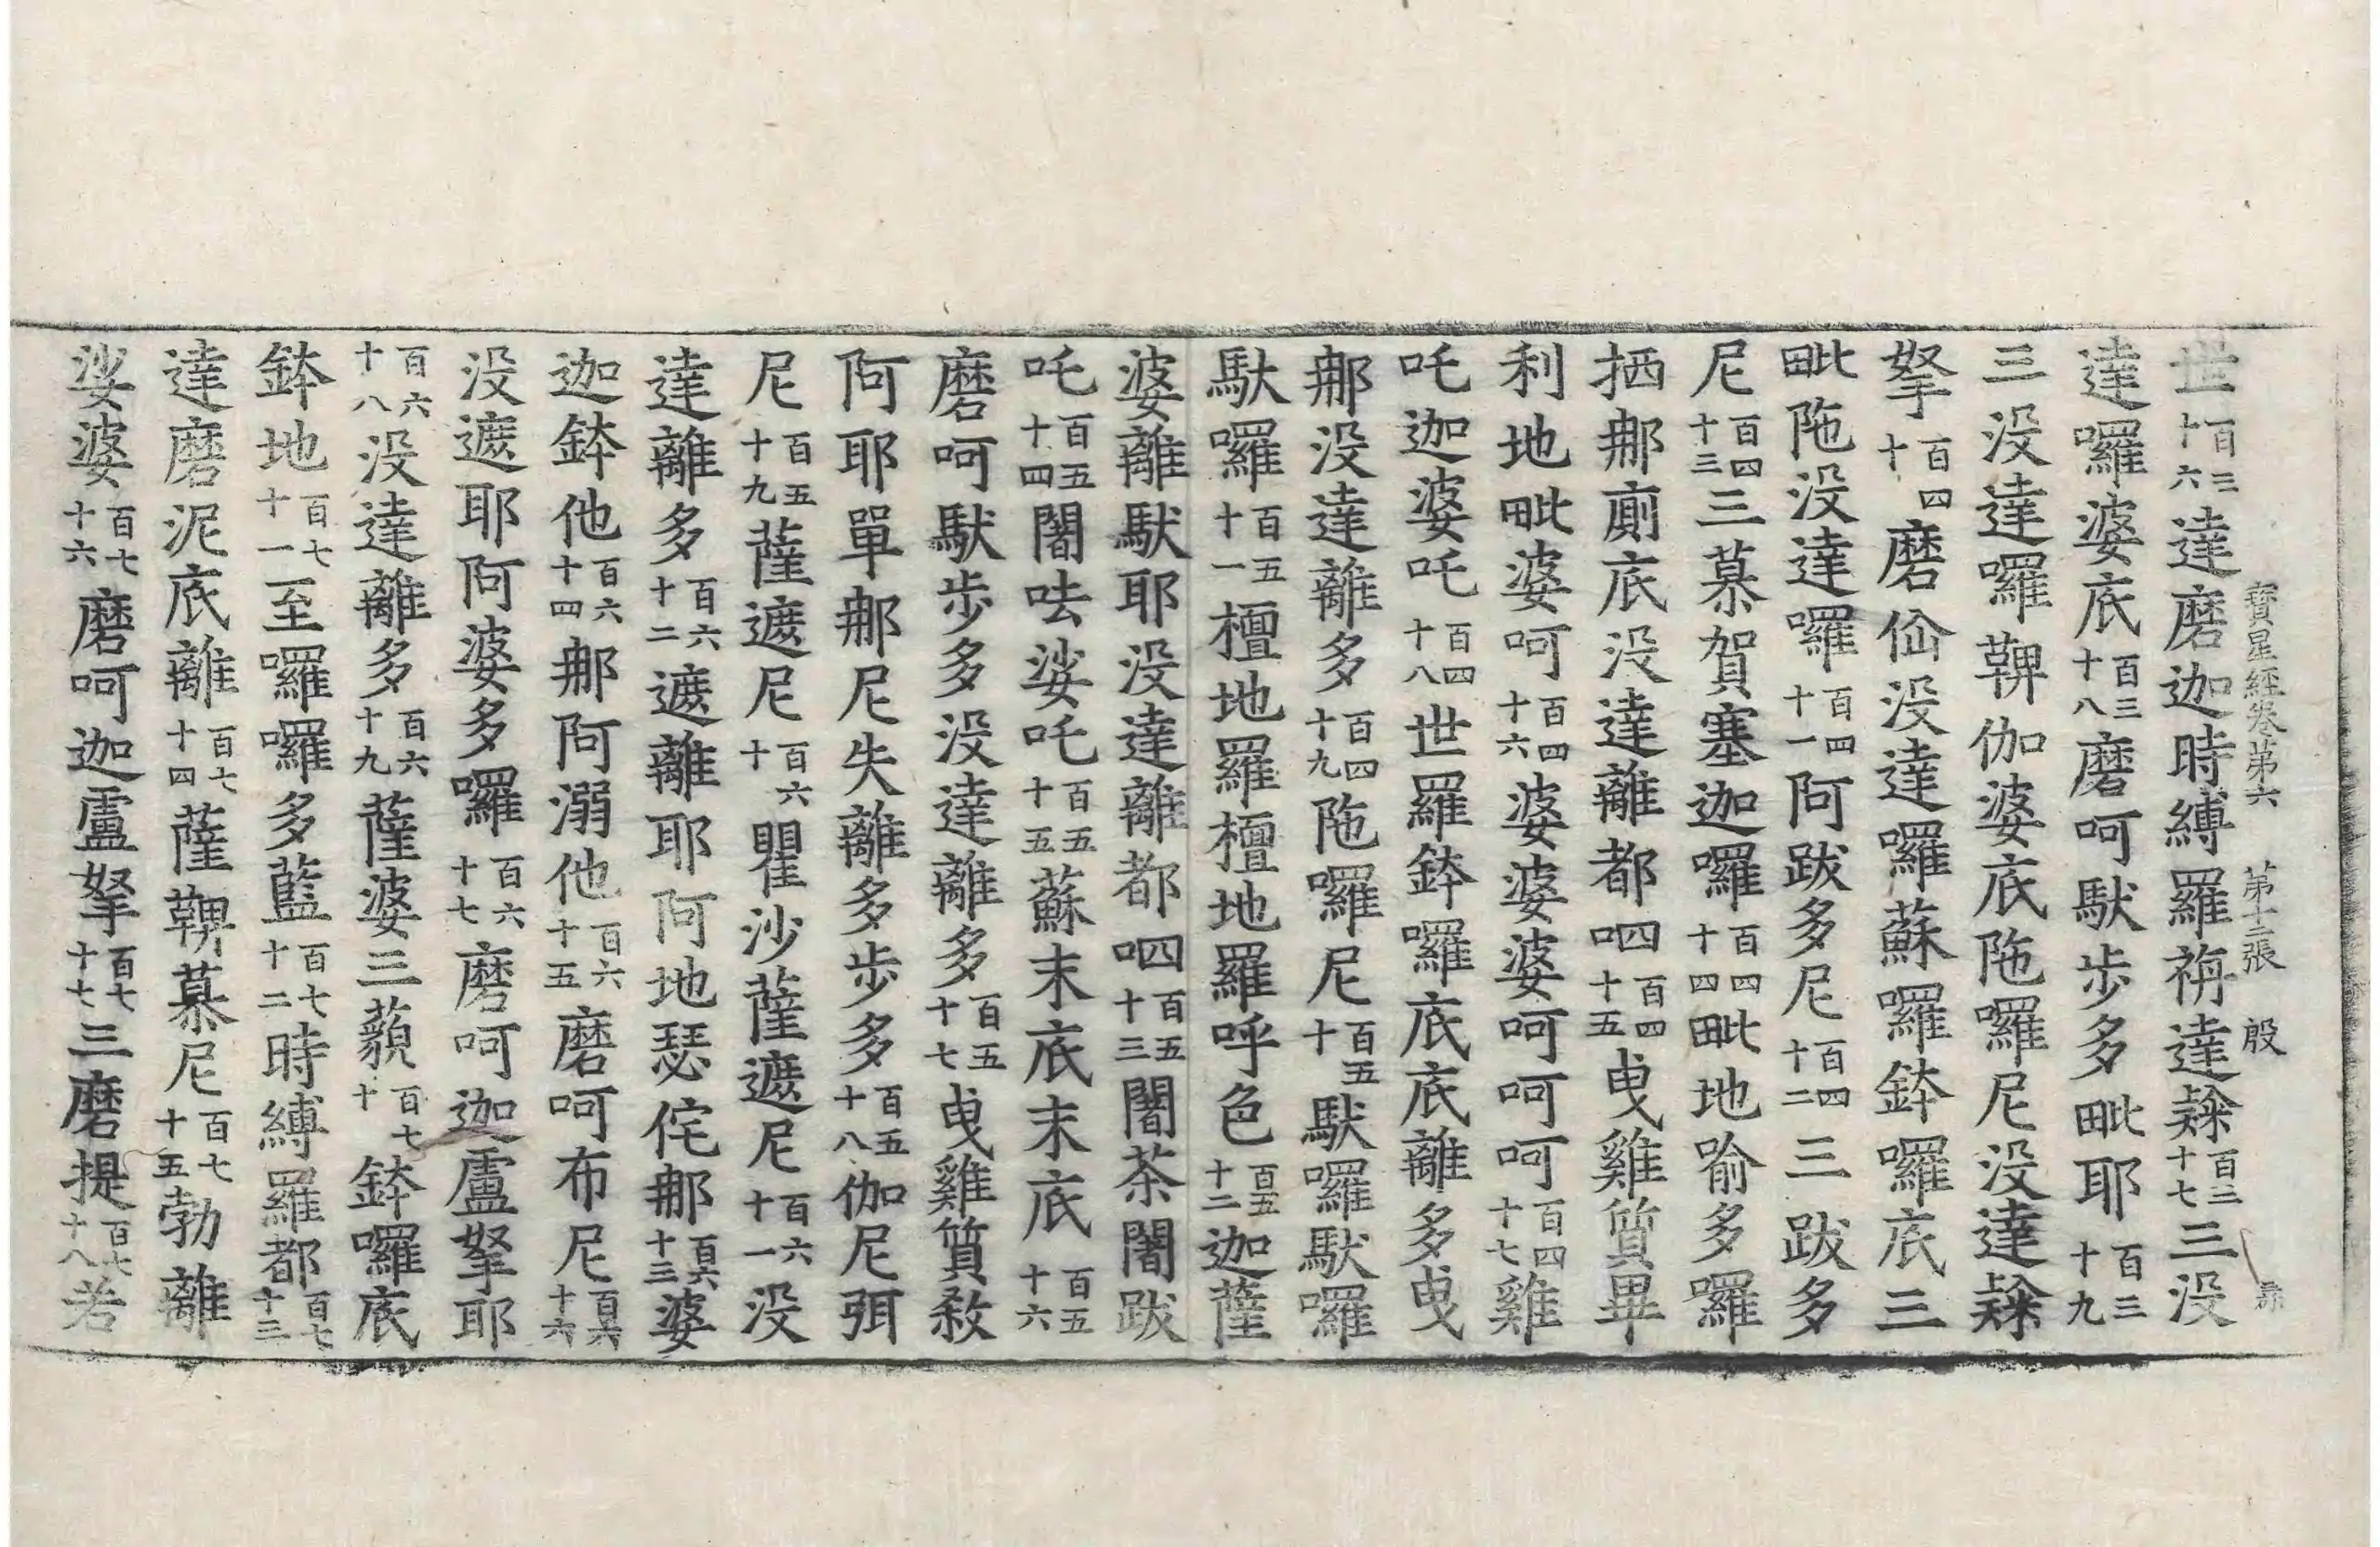 寶星經卷第六 第十二張 殷
世百三十六達磨迦時縛羅祷達䤈百三十七三没
達囉婆底百三十八磨呵馱步多毗耶百三十九
三没達囉鞞伽婆底陁囉尼没達䤈
拏百四十磨㑚没達囉蘇囉鉢囉底三
毗陁没達囉百四十一阿跋多尼百四十二三跋多
尼百四十三三慕賀塞迦囉百四十四毗地喻多囉
捛那廁底没達離都呬百四十五曳雞質畢
利地毗婆呵百四十六婆婆婆呵呵呵百四十七雞
吒迦婆吒百四十八世羅鉢囉底底離多曳
那没達離多百四十九陁囉尼百五十馱囉馱囉
馱囉百五十一檀地羅檀地羅呼色百五十二迦薩
婆離馱耶没達離都呬百五十三闇茶闇跋
吒百五十四闇呿娑吒百五十五蘇末底末底百五十六
磨呵馱步多没達離多百五十七曳雞質敎
阿耶單那尼失離多步多百五十八伽尼弭
尼百五十九薩遮尼百六十瞿沙薩遮尼百六十一没
達離多百六十二遮離耶阿地瑟侘那百六十三婆
迦鉢他百六十四那阿溺他百六十五磨呵布尼百六十六
没遮耶阿婆多囉百六十七磨呵迦盧拏耶
百六十八没達離多百六十九薩婆三藐百七十鉢囉底
鉢地百七十一至囉囉多藍百七十二時縛羅都百七十三
達磨泥底離百七十四薩鞞慕尼百七十五勃離
娑婆百七十六磨呵迦盧拏百七十七三磨提百七十八若